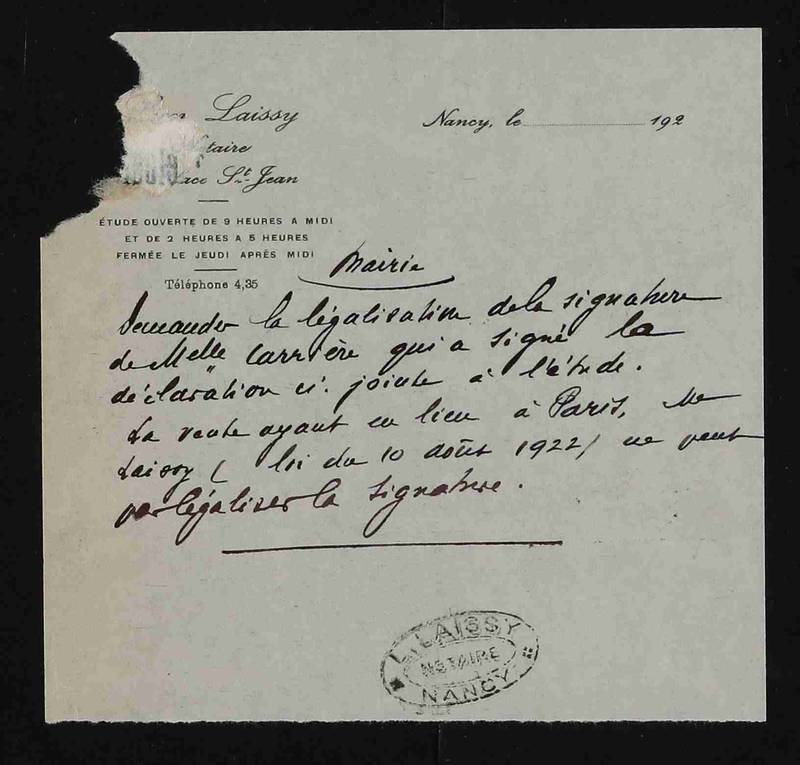 Laissy
Nancy, le 192
taire
ace St Jean
ÉTUDE OUVERTE DE 9 HEURES A MIDI
ET DE 2 HEURES A 5 HEURES
FERMÉE LE JEUDI APRÈS MIDI
Téléphone 4,35
Mairie
Demander la légalisation de la signature
de Melle Carrière qui a signé la
déclaration ci-jointe à l'étude.
La vente ayant eu lieu à Paris, Me
Laissy (loi du 10 août 1922) ne peut
pas légaliser la signature.
L. LAISSY
NOTAIRE
NANCY